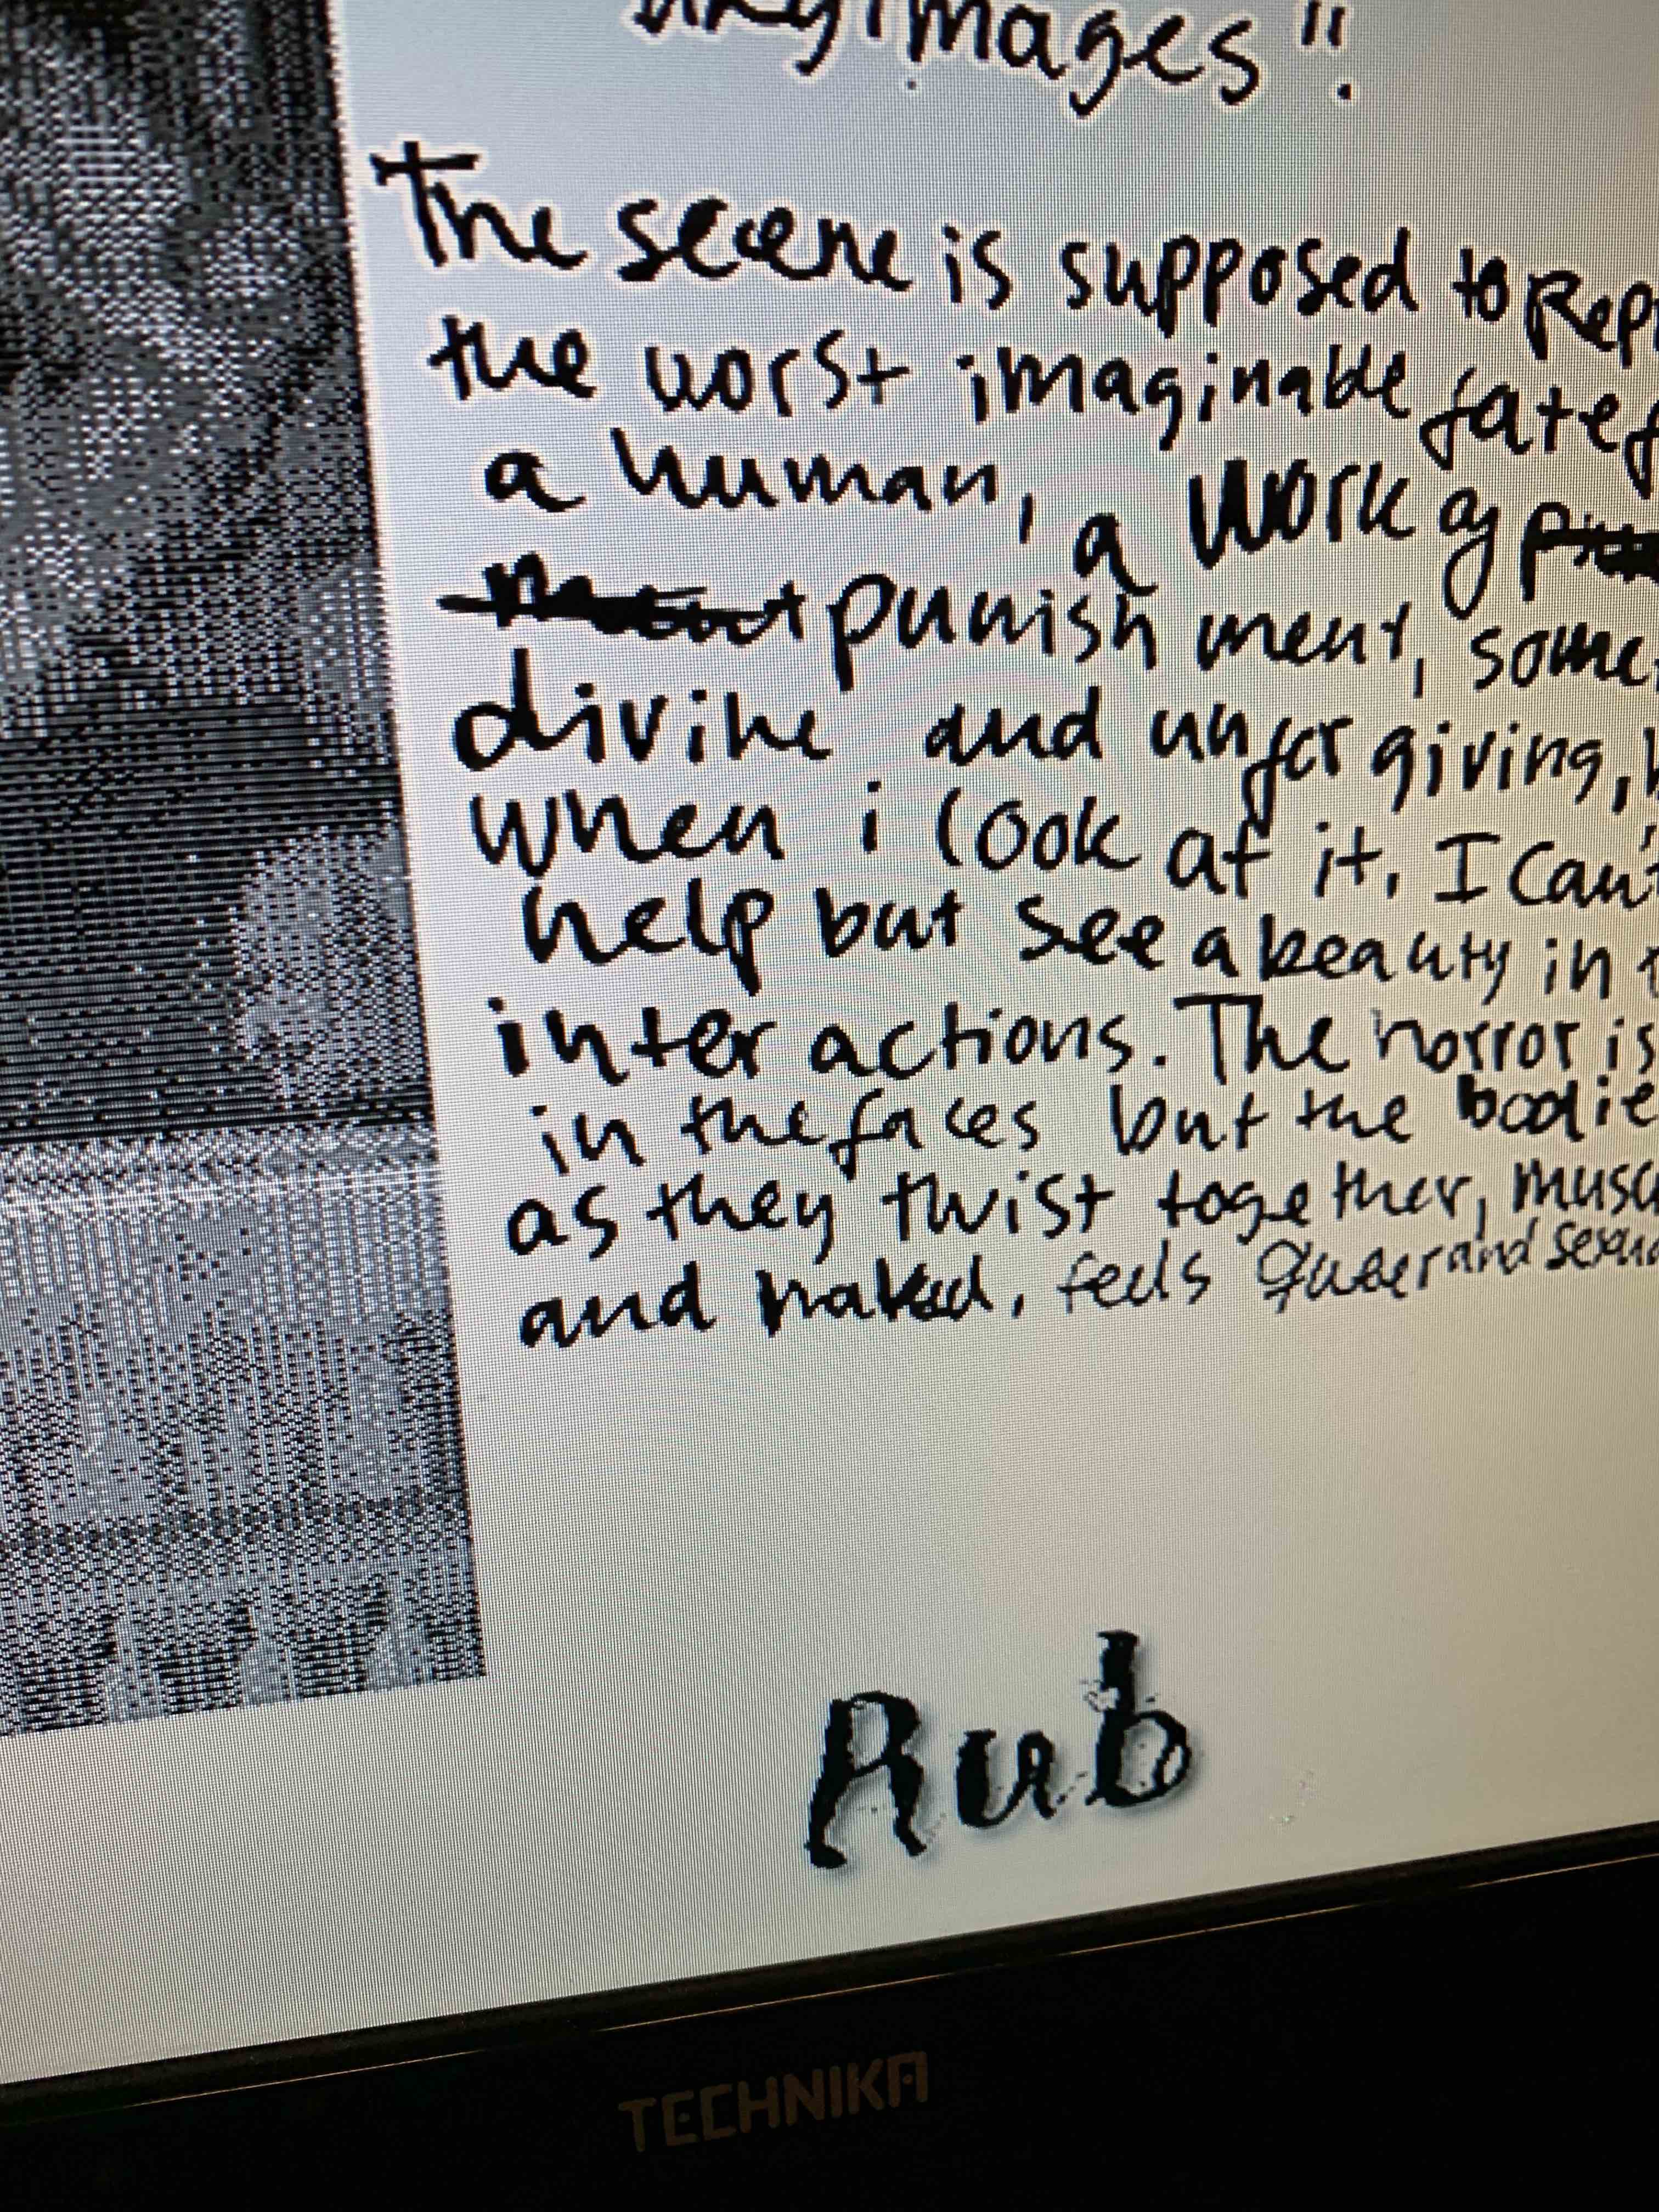 images".
The scene is supposed to Rep
the worst imaginable fate
a human, a work of
punish ment, some
divine and unfor giving,
when i look at it. I can't
help but see a beauty in
inter actions. The horror is
in the faces but the bodie
as they twist together, musc
and naked, feels queer and sexua
Rub
TECHNIKA